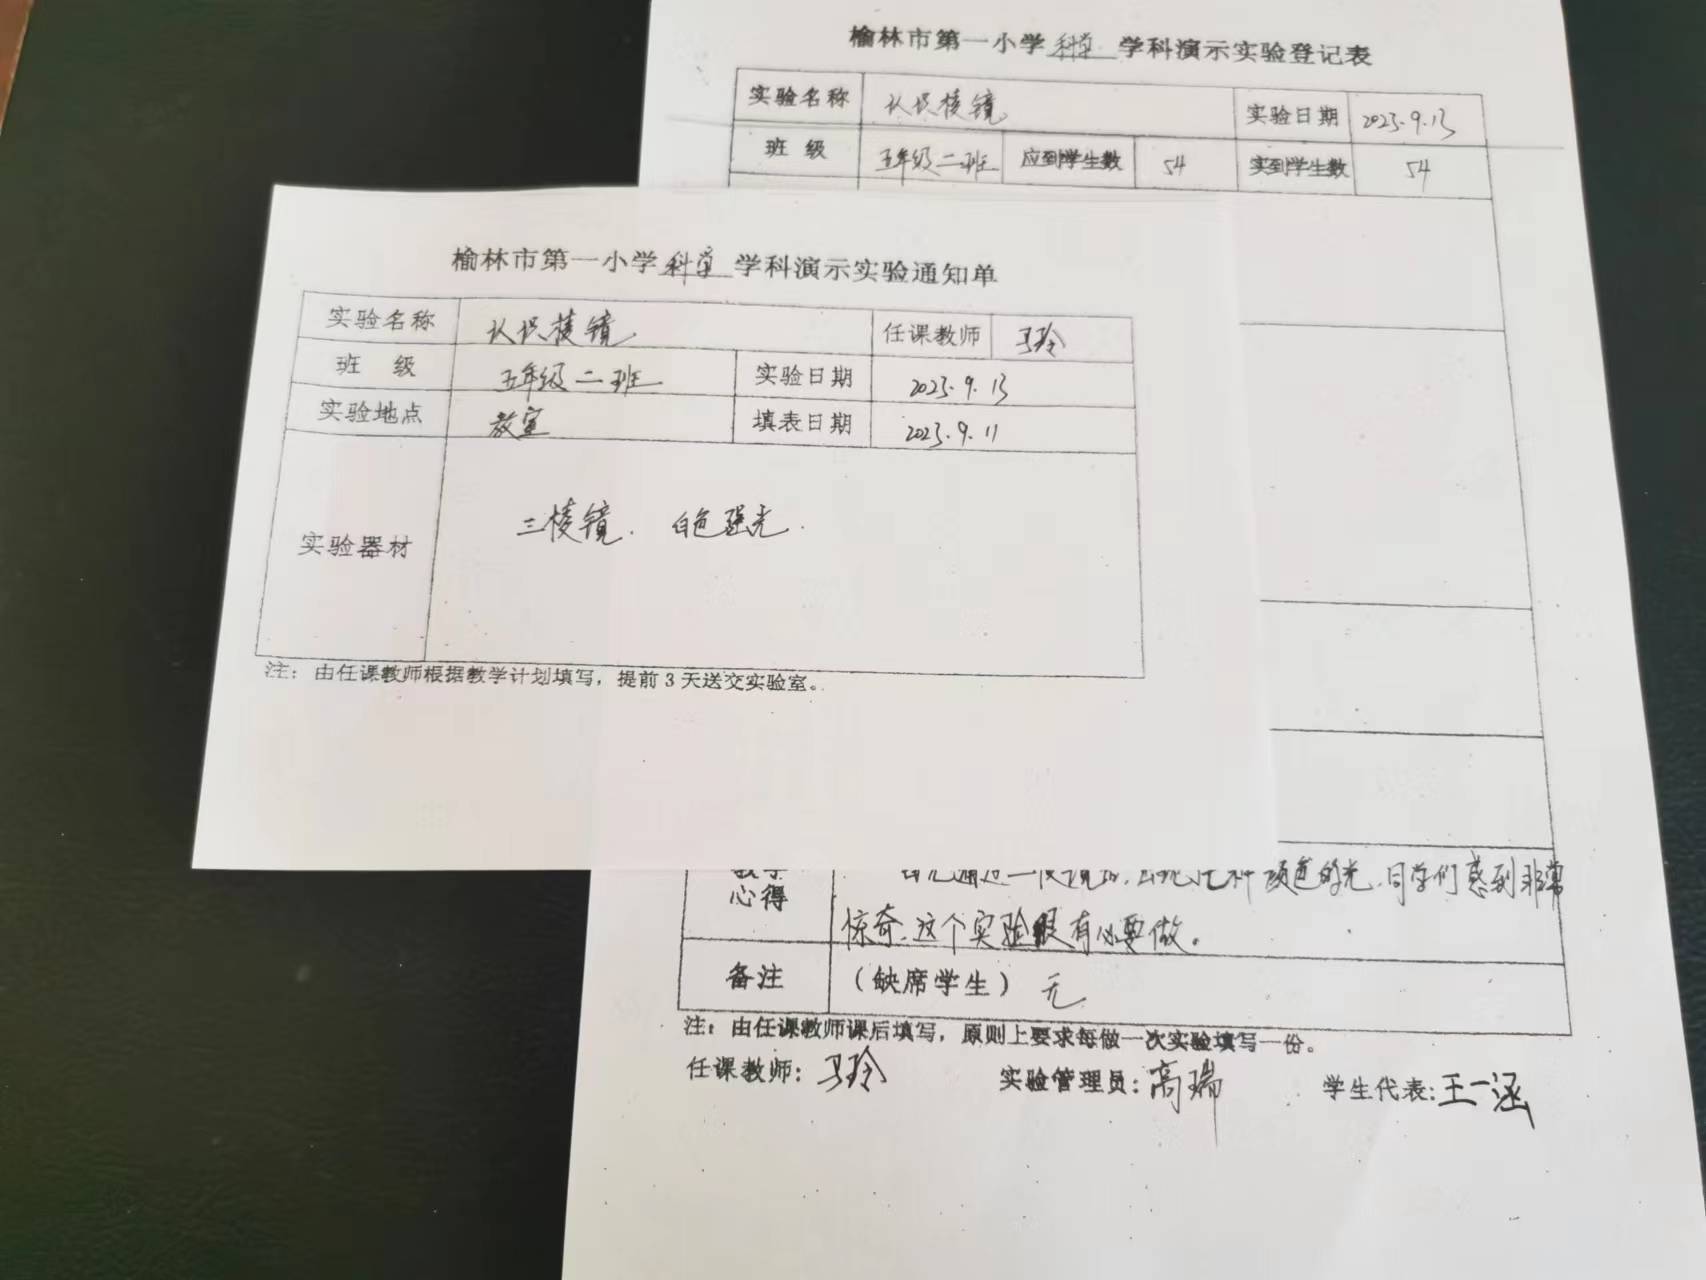 榆林市第一小学科学学科演示实验登记表
实验名称 认识棱镜 实验日期 2023.9.13
班级 五年级二班 应到学生数 54 实到学生数 54
榆林市第一小学科学学科演示实验通知单
实验名称 认识棱镜 任课教师 马玲
班级 五年级二班 实验日期 2023.9.13
实验地点 教室 填表日期 2023.9.11
实验器材 三棱镜. 白色强光.
注：由任课教师根据教学计划填写，提前3天送交实验室。
心得 的光.同学们感到非常
惊奇.这个实验很有必要做。
备注 （缺席学生）无
注：由任课教师课后填写，原则上要求每做一次实验填写一份。
任课教师：马玲 实验管理员：高瑞 学生代表：王一涵